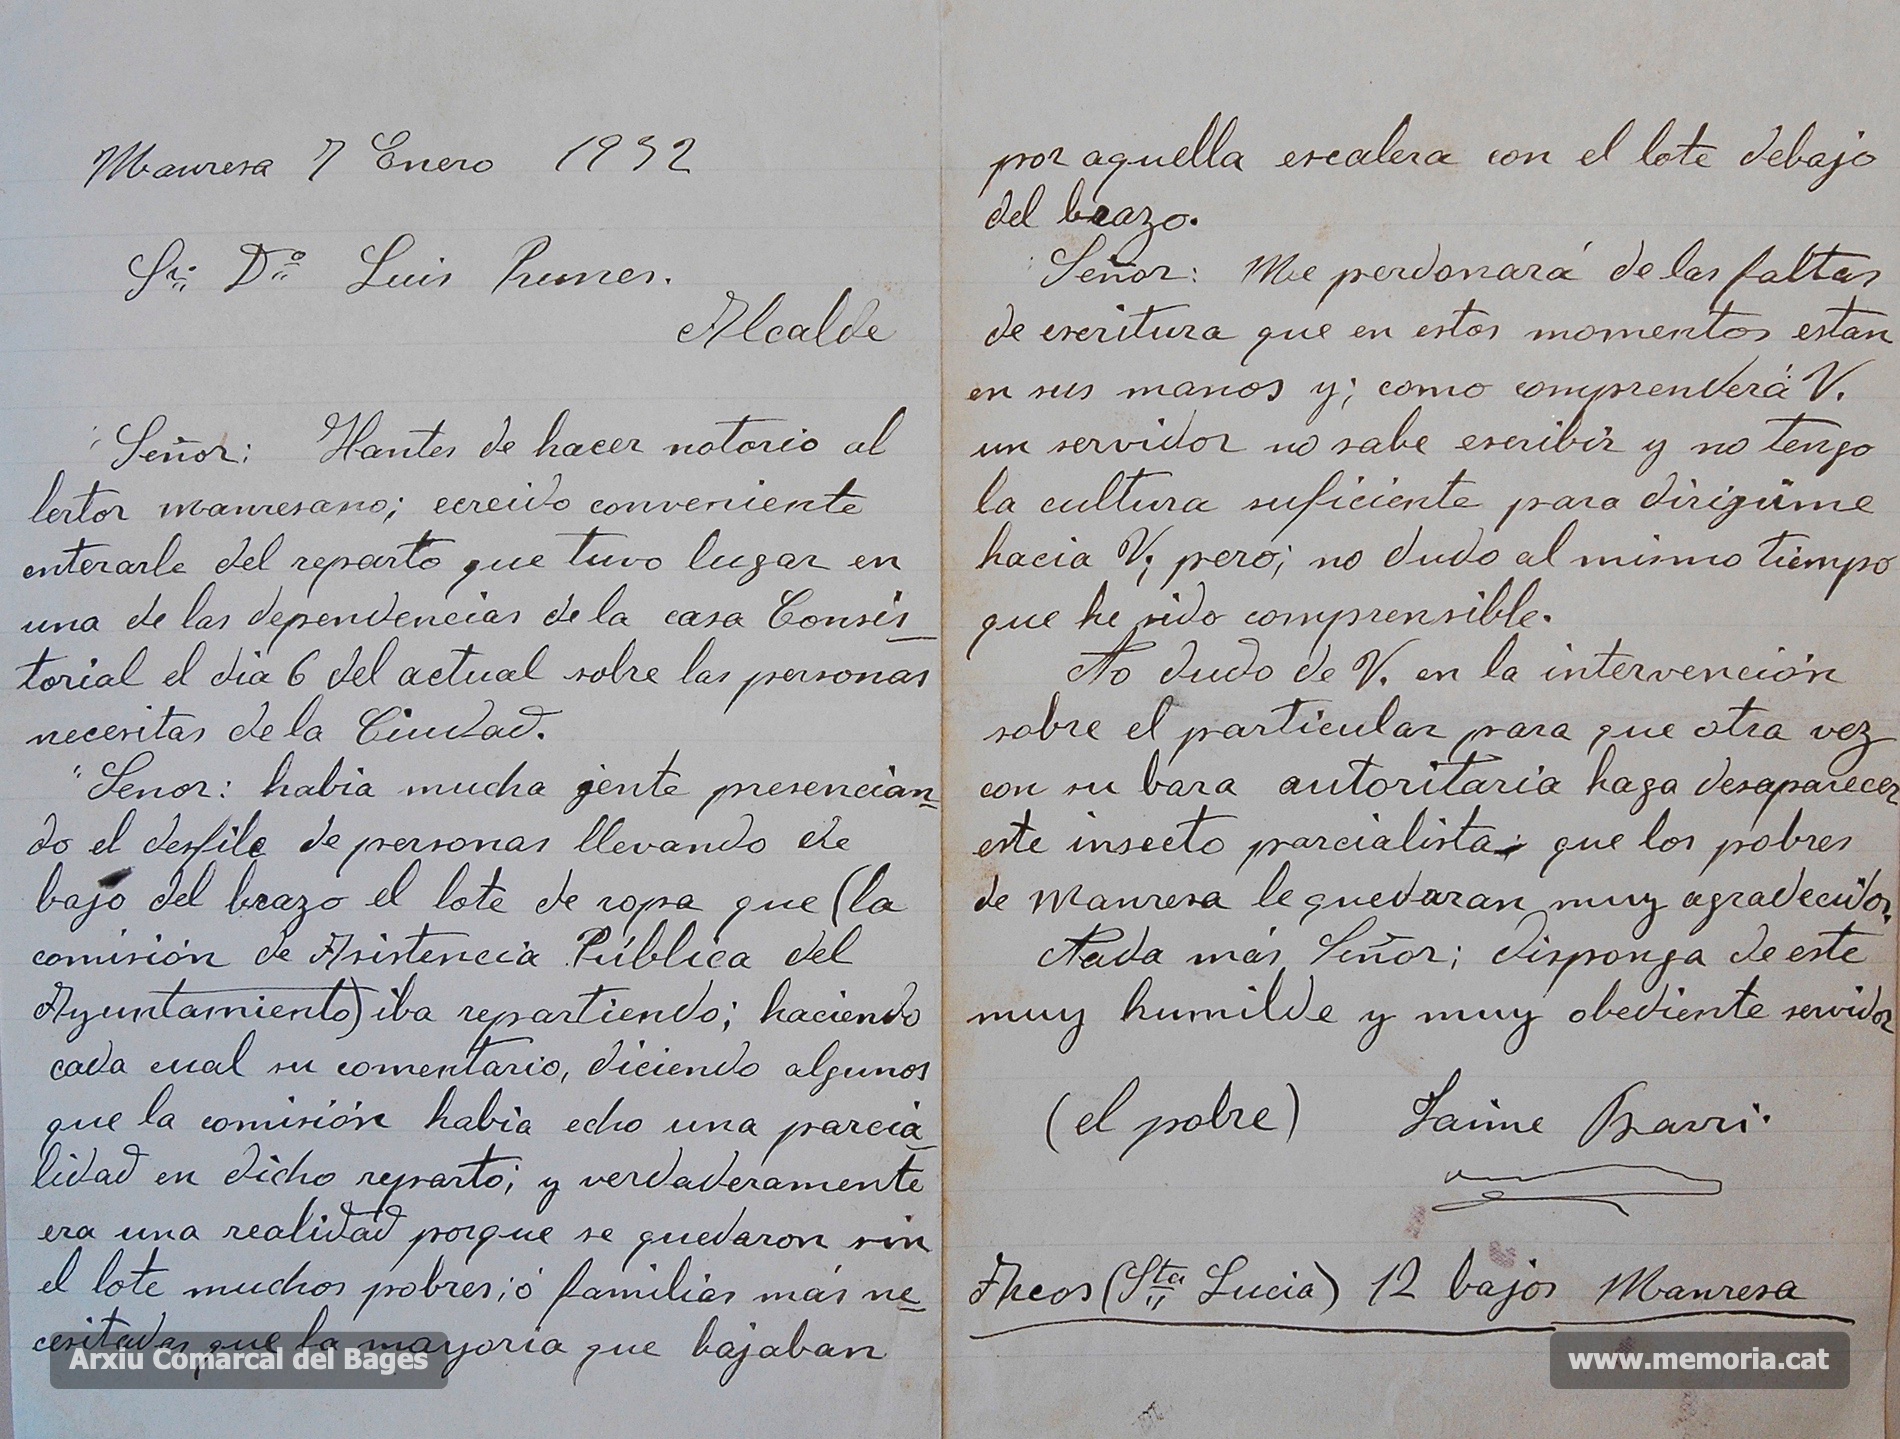 Manresa 7 Enero 1932
Sr. Dº Luis Prunes.
Alcalde
Señor: Hantes de hacer notorio al
lector manresano; ecreido conveniente
enterarle del reparto que tuvo lugar en
una de las dependencias de la casa Consis
torial el dia 6 del actual sobre las personas
necesitas de la Ciudad.
Senor: habia mucha jente presencian
do el desfile de personas llevando de
bajo del brazo el lote de ropa que (la
comisión de Asistencia Pública del
Ayuntamiento) iba repartiendo; haciendo
cada cual su comentario, diciendo algunos
que la comisión habia echo una parcia
lidad en dicho reparto; y verdaderamente
era una realidad porque se quedaron sin
el lote muchos pobres; ó familias más ne
cesitadas que la mayoria que bajaban
por aquella escalera con el lote debajo
del brazo.
Señor: Me perdonará de las faltas
de escritura que en estos momentos estan
en sus manos y; como comprenderá V.
un servidor no sabe escribir y no tengo
la cultura suficiente para dirigirme
hacia V; pero; no dudo al mismo tiempo
que he sido comprensible.
No dudo de V. en la intervención
sobre el particular para que otra vez
con su bara autoritaria haga desaparecer
este insecto parcialista; que los pobres
de Manresa le quedaran muy agradecidos.
Nada más Señor; disponga de este
muy humilde y muy obediente servidor
(el pobre) Jaime Barri.
Arcos (Sta Lucia) 12 bajos Manresa
Arxiu Comarcal del Bages
www.memoria.cat